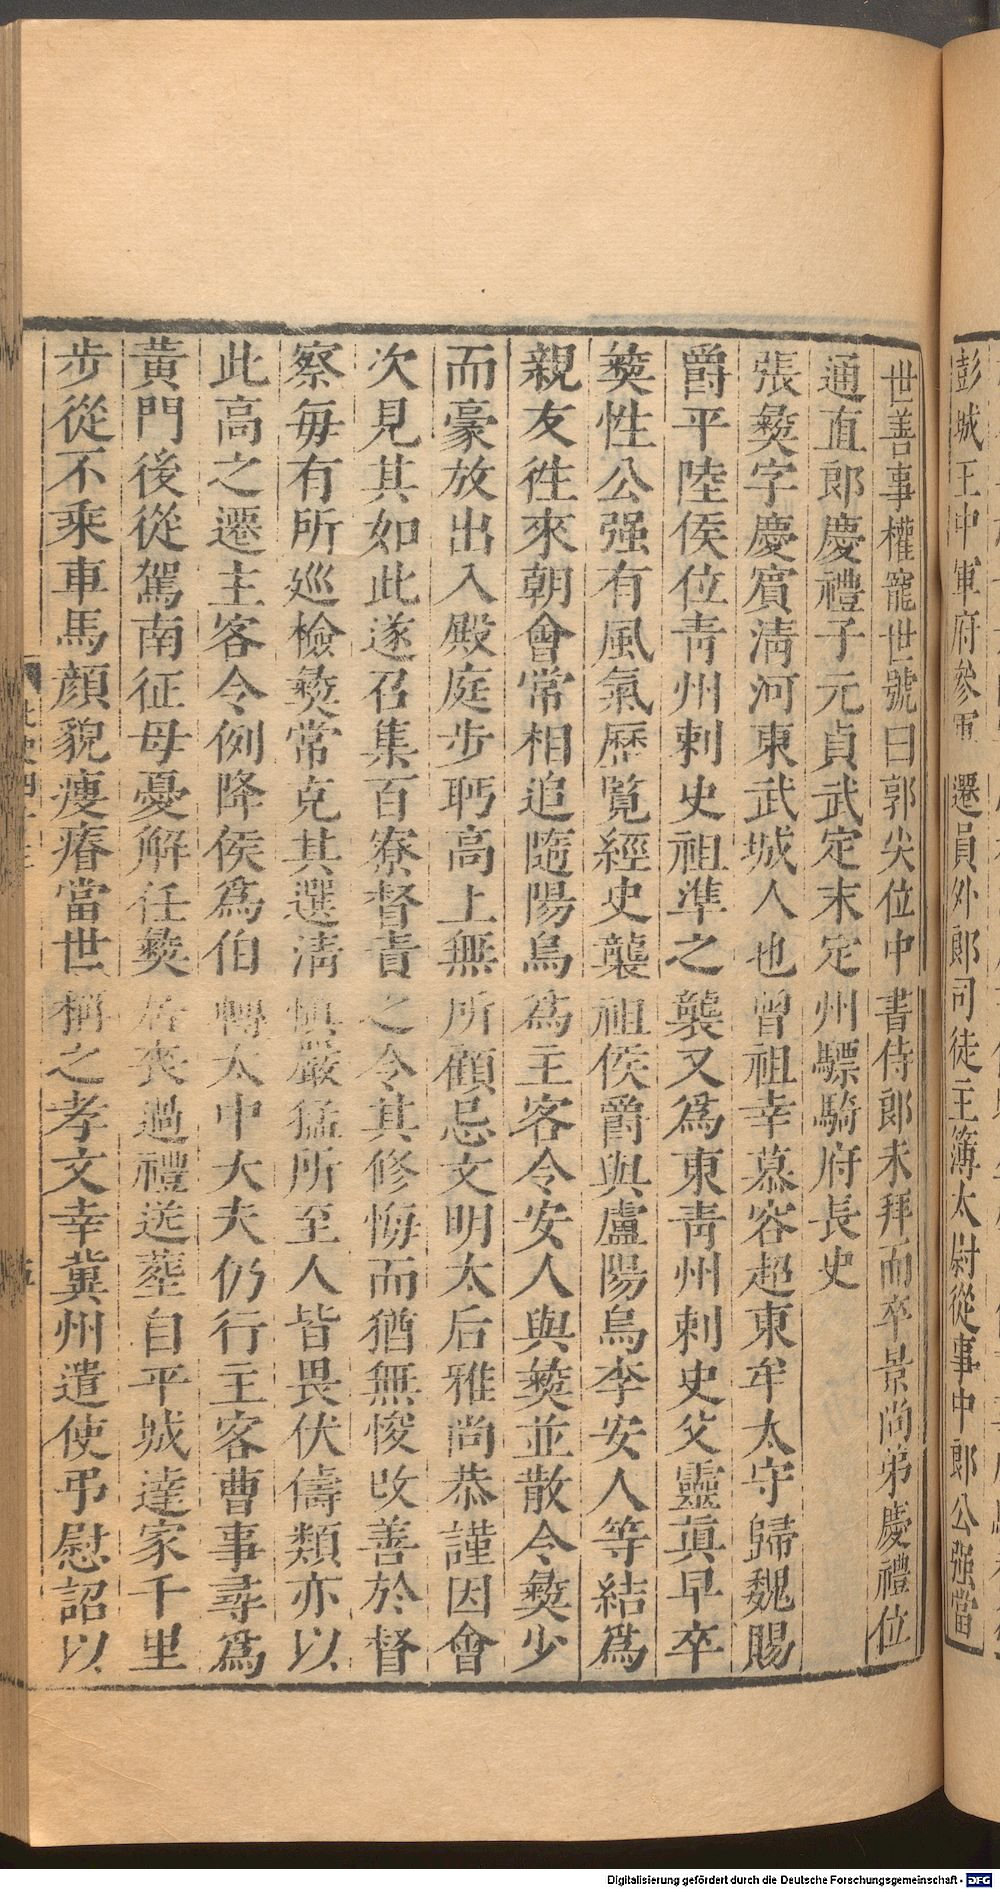 彭城王中軍府參軍遷員外郎司徒主簿太尉從事中郎公强當
世善事權寵世號曰郭尖位中書侍郎未拜而卒景尚弟慶禮位
通直郎慶禮子元貞武定末定州驃騎府長史
張彛字慶賓淸河東武城人也曾祖幸慕容超東牟太守歸魏賜
爵平陸侯位靑州刺史祖準之襲又爲東靑州刺史父靈眞早卒
彛性公强有風氣歷覧經史襲祖侯爵與盧陽烏李安人等結爲
親友徃來朝會常相追隨陽烏爲主客令安人與彛並散令彛少
而豪放出入殿庭步眄高上無所顧忌文明太后雅尚恭謹因會
次見其如此遂召集百寮督責之令其修悔而猶無悛改善於督
察每有所巡檢彛常克其選淸愼嚴猛所至人皆畏伏儔類亦以
此高之遷主客令例降侯爲伯轉太中大夫仍行主客曹事尋爲
黃門後從駕南征母憂解任彛居喪過禮送葬自平城達家千里
步從不乘車馬顏貌瘦瘠當世稱之孝文幸冀州遣使弔慰詔以
Digitalisierung gefördert durch die Deutsche Forschungsgemeinschaft - DFG